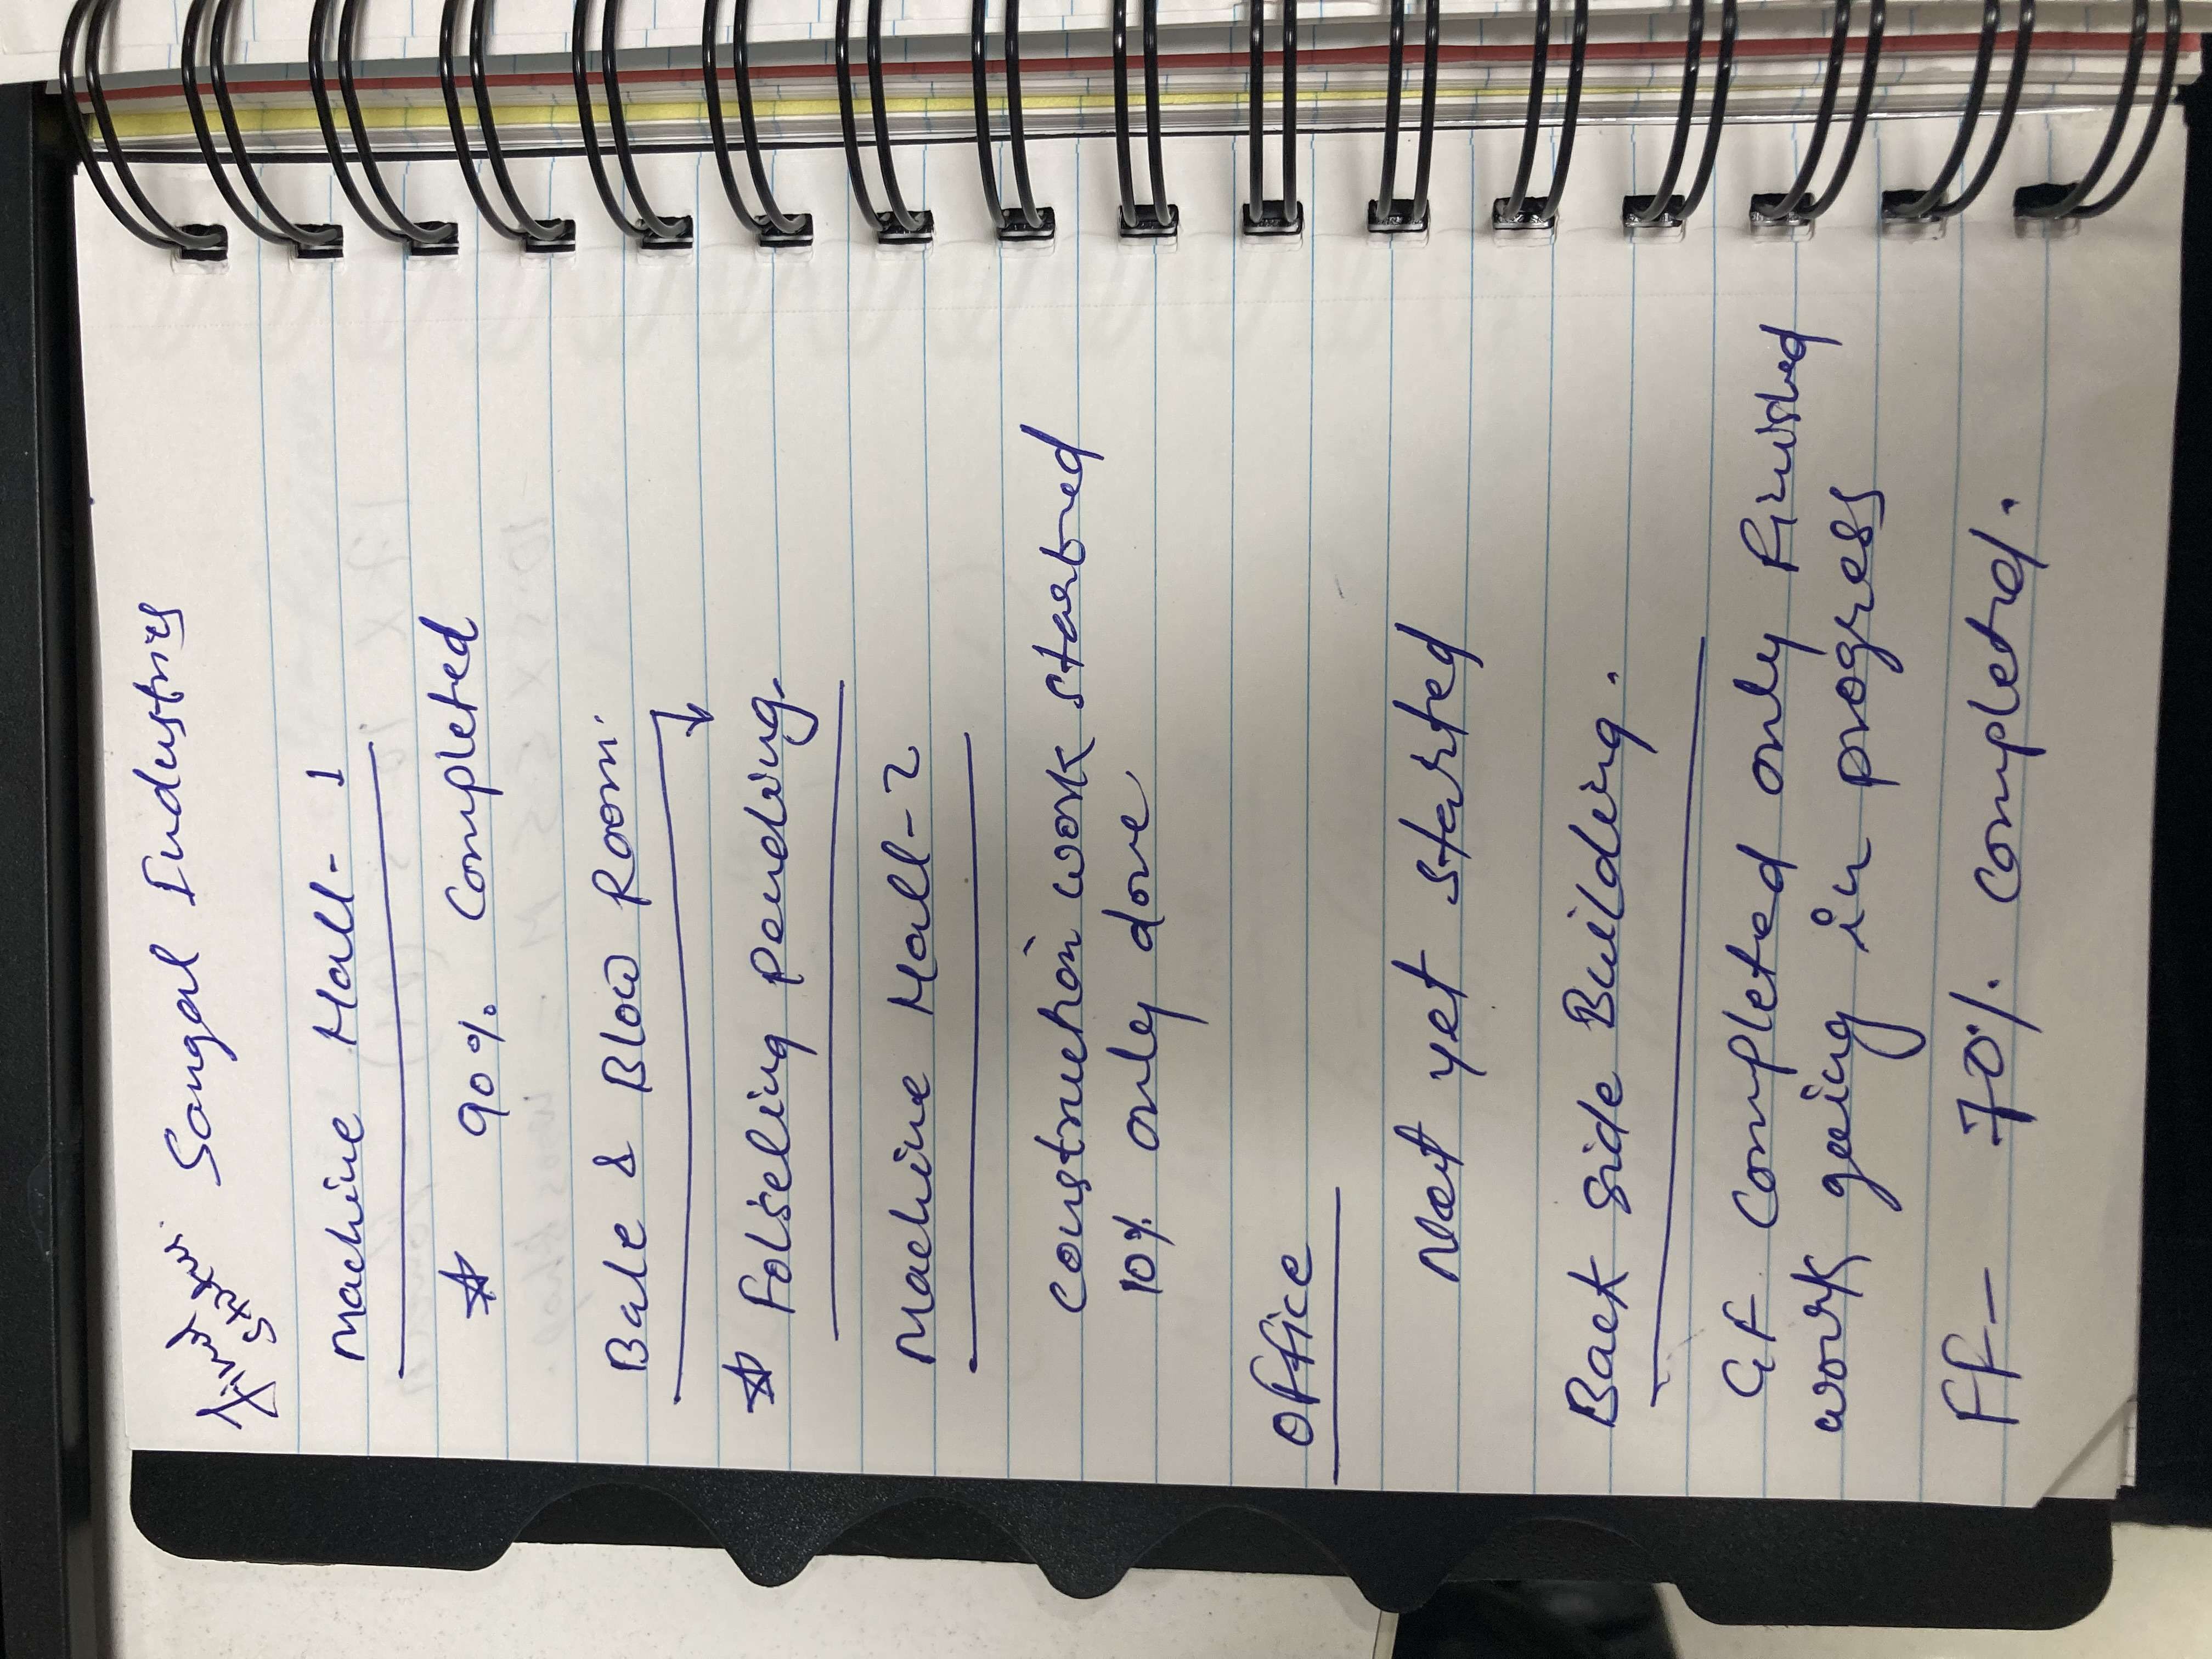 Sangal Industries
Machine Hall-1
☆ 90%. Completed
Bale & Blow Room.
↳
☆ Folseling pending.
Machine Hall-2
Construction work started
10% only done
Office
Not yet started
Back Side Building.
GF Completed only Finished
work going in progress
FF- 70%. Completed.